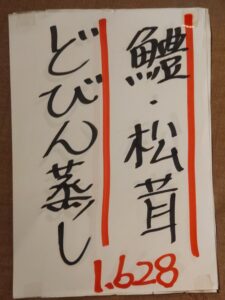 鱧・松茸
どびん蒸し
1.628